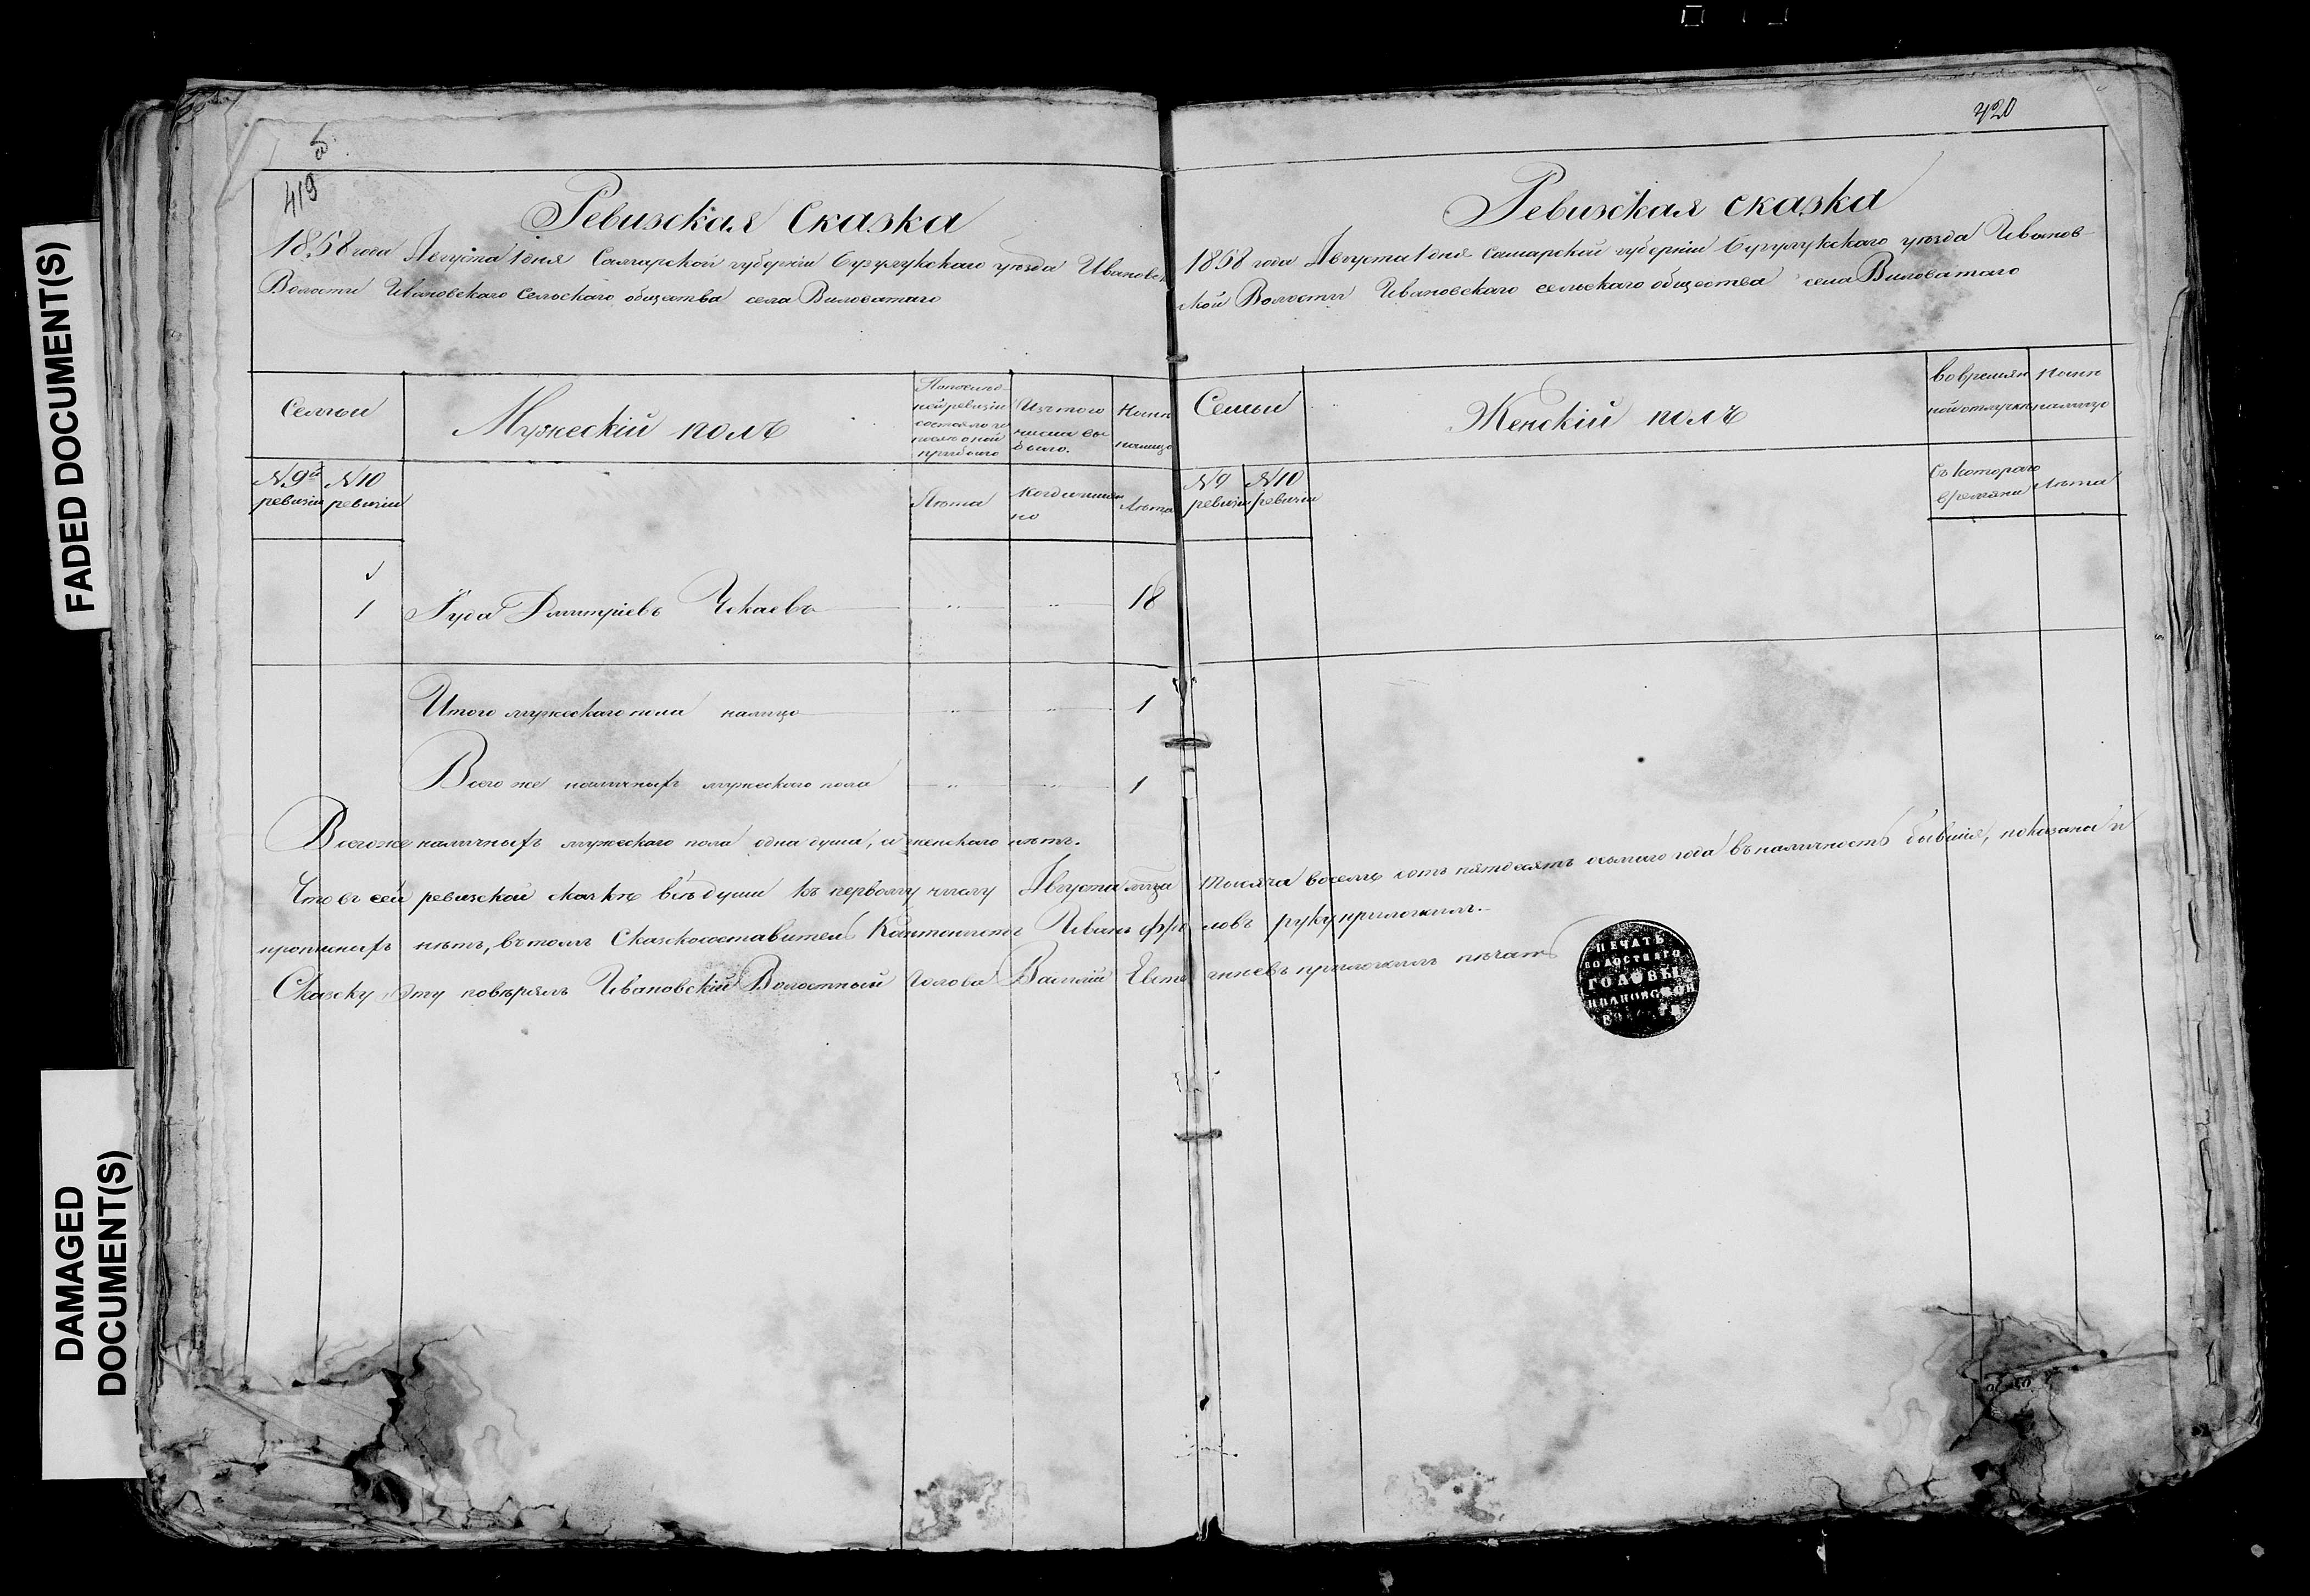 FADED DOCUMENT(S)
DAMAGED
DOCUMENT(S)
419
Ревизская Сказка
1858 года Августа 1 дня Самарской губернiи Бузулукскаго уѣзда Ивановск
Волости Ивановскаго Сельскаго общества села Виловатаго
Семьи
Мужескiй полъ
По послѣд-
ней ревизiи
состояло и
послѣ оной
прибыло
Изъ того
числа вы
было.
Нынѣ
налицо
N 9й
ревизiи
N 10
ревизiи
Лѣта
Когда именно
Лѣта
1 Iуда Дмитрiевъ Чекаевъ 18
Итого мужескаго пола налицо 1
Всего же наличныхъ мужескаго пола 1
420
Ревизская сказка
1858 года Августа 1 дня Самарской губернiи Бузулукскаго уѣзда Иванов
ской Волости Ивановскаго сельскаго общества села Виловатаго
Семьи
Женскiй полъ
Во времян
ной отлучкѣ
Нынѣ
налицо
N 9
ревизiи
N 10
ревизiи
Съ котораго
времяни
Лѣта
Всего же наличныхъ мужескаго пола одна душа, а женскаго нѣтъ.
Что въ сей ревизской сказкѣ всѣ души къ первому числу Августа мѣца тысяча восемь сотъ пятдесятъ осьмаго года въ наличности бывшiя, показаны и
прописныхъ нѣтъ, въ томъ Сказкосоставитель Иванъ Фроловъ руку приложилъ.
Сказку эту повѣрялъ Ивановскiй Волостный Голова Василiй приложилъ печать
ПЕЧАТЬ
ВОЛОСТНАГО
ГОЛОВЫ
ИВАНОВСКОЙ